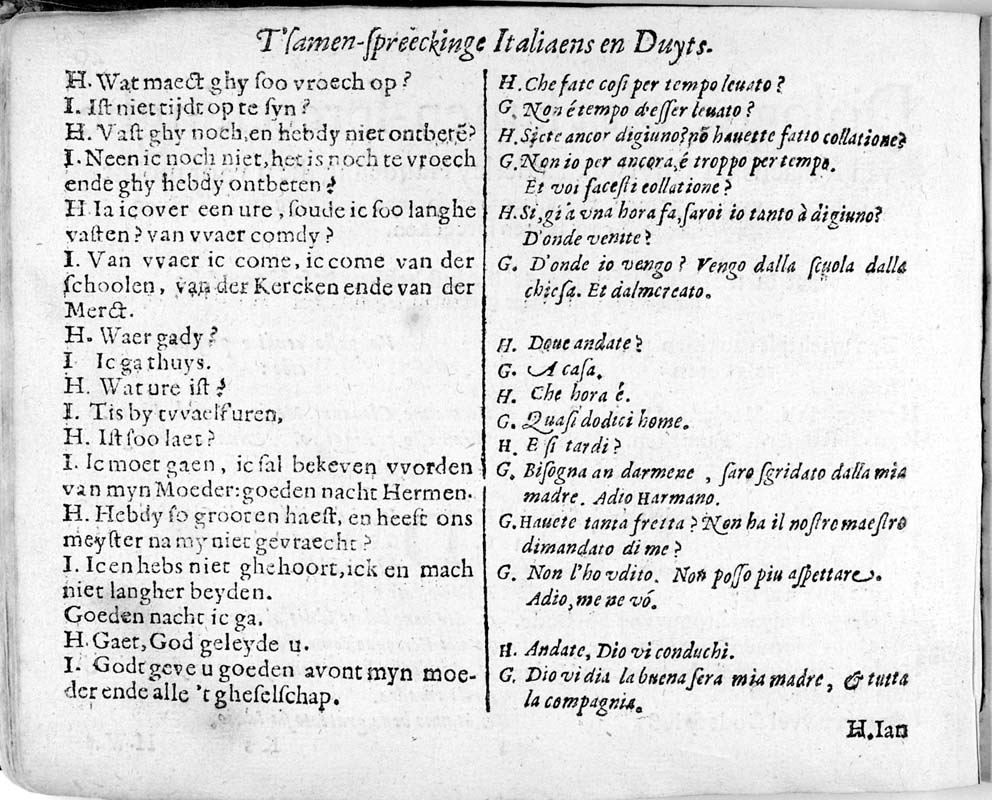 T'samen-spreeckinge Italiaens en Duyts.
H. Wat maect ghy soo vroech op?
I. Ist niet tijdt op te syn?
H. Vast ghy noch, en hebdy niet ontbetē?
I. Neen ic noch niet, het is noch te vroech
ende ghy hebdy ontbeten?
H. Ia ic over een ure, soude ic soo langhe
vasten? van vvaer comdy?
I. Van vvaer ic come, ic come van der
schoolen, van der Kercken ende van der
Merct.
H. Waer gady?
I Ic ga thuys.
H. Wat ure ist?
I. Tis by tvvaelf uren,
H. Ist soo laet?
I. Ic moet gaen, ic sal bekeven vvorden
van myn Moeder: goeden nacht Hermen.
H. Hebdy so grooten haest, en heeft ons
meyster na my niet gevraecht?
I. Ic en hebs niet ghehoort, ick en mach
niet langher beyden.
Goeden nacht ic ga.
H. Gaet, God geleyde u.
I. Godt geve u goeden avont myn moe-
der ende alle 't gheselschap.
H. Che fate cosi per tempo leuato?
G. Non é tempo d'esser leuato?
H. Siete ancor digiuno? nō hauette fatto collatione?
G. Non io per ancora, é troppo per tempo.
Et voi facesti collatione?
H. Si, gi à vna hora fa, saroi io tanto à digiuno?
D'onde venite?
G. D'onde io vengo? Vengo dalla scuola dalla
chiesa. Et dal mercato.
H. Doue andate?
G. A casa.
H. Che hora é.
G. Quasi dodici home.
H. E si tardi?
G. Bisogna an darmene, saro sgridato dalla mia
madre. Adio Harmano.
G. Hauete tanta fretta? Non ha il nostro maestro
dimandato di me?
G. Non l'ho vdito. Non posso piu aspettare.
Adio, me ne vó.
H. Andate, Dio vi conduchi.
G. Dio vi dia la buena sera mia madre, & tutta
la compagnia.
H. Ian